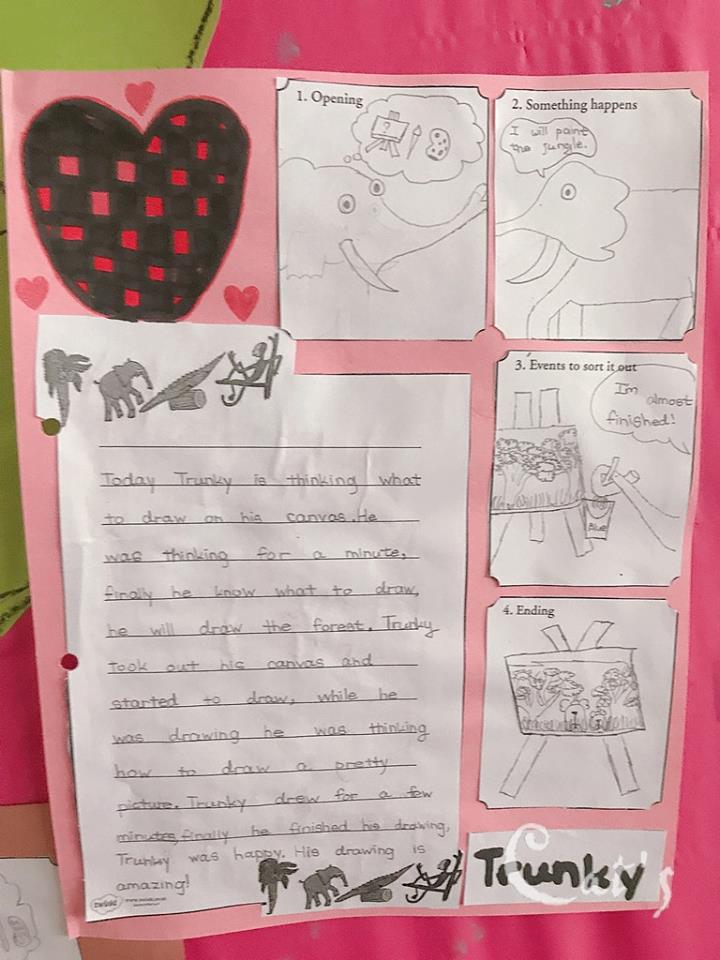 1. Opening
?
2. Something happens
I will paint
the jungle.
3. Events to sort it out
I'm almost
finished!
Blue
4. Ending
Today Trunky is thinking what
to draw on his canvas. He
was thinking for a minute,
finally he know what to draw,
he will draw the forest. Trunky
took out his canvas and
started to draw, while he
was drawing he was thinking
how to draw a pretty
picture. Trunky drew for a few
minutes, finally he finished his drawing,
Trunky was happy. His drawing is
amazing!
twinkl
Trunky
Cat's